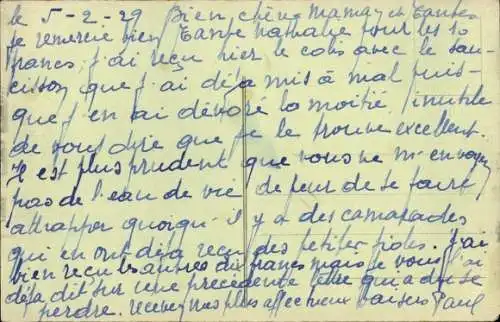 le 5-2-29 Bien chère Maman et Tantes
je remercie bien Tante Nathalie pour les 10
francs, j'ai reçu hier le colis avec le sau-
cisson que j'ai déjà mis à mal puis-
que j'en ai dévoré la moitié, inutile
de vous dire que je le trouve excellent.
Il est plus prudent que vous ne m'envoyez
pas de l'eau de vie de peur de se faire
attrapper quoiqu'il y a des camarades
qui en ont déjà reçu des petites fioles. J'ai
bien reçu les autres dix francs mais je vous l'ai
déjà dit sur une précédente lettre qui a du se
perdre. recevez mes plus affectueux baisers Paul